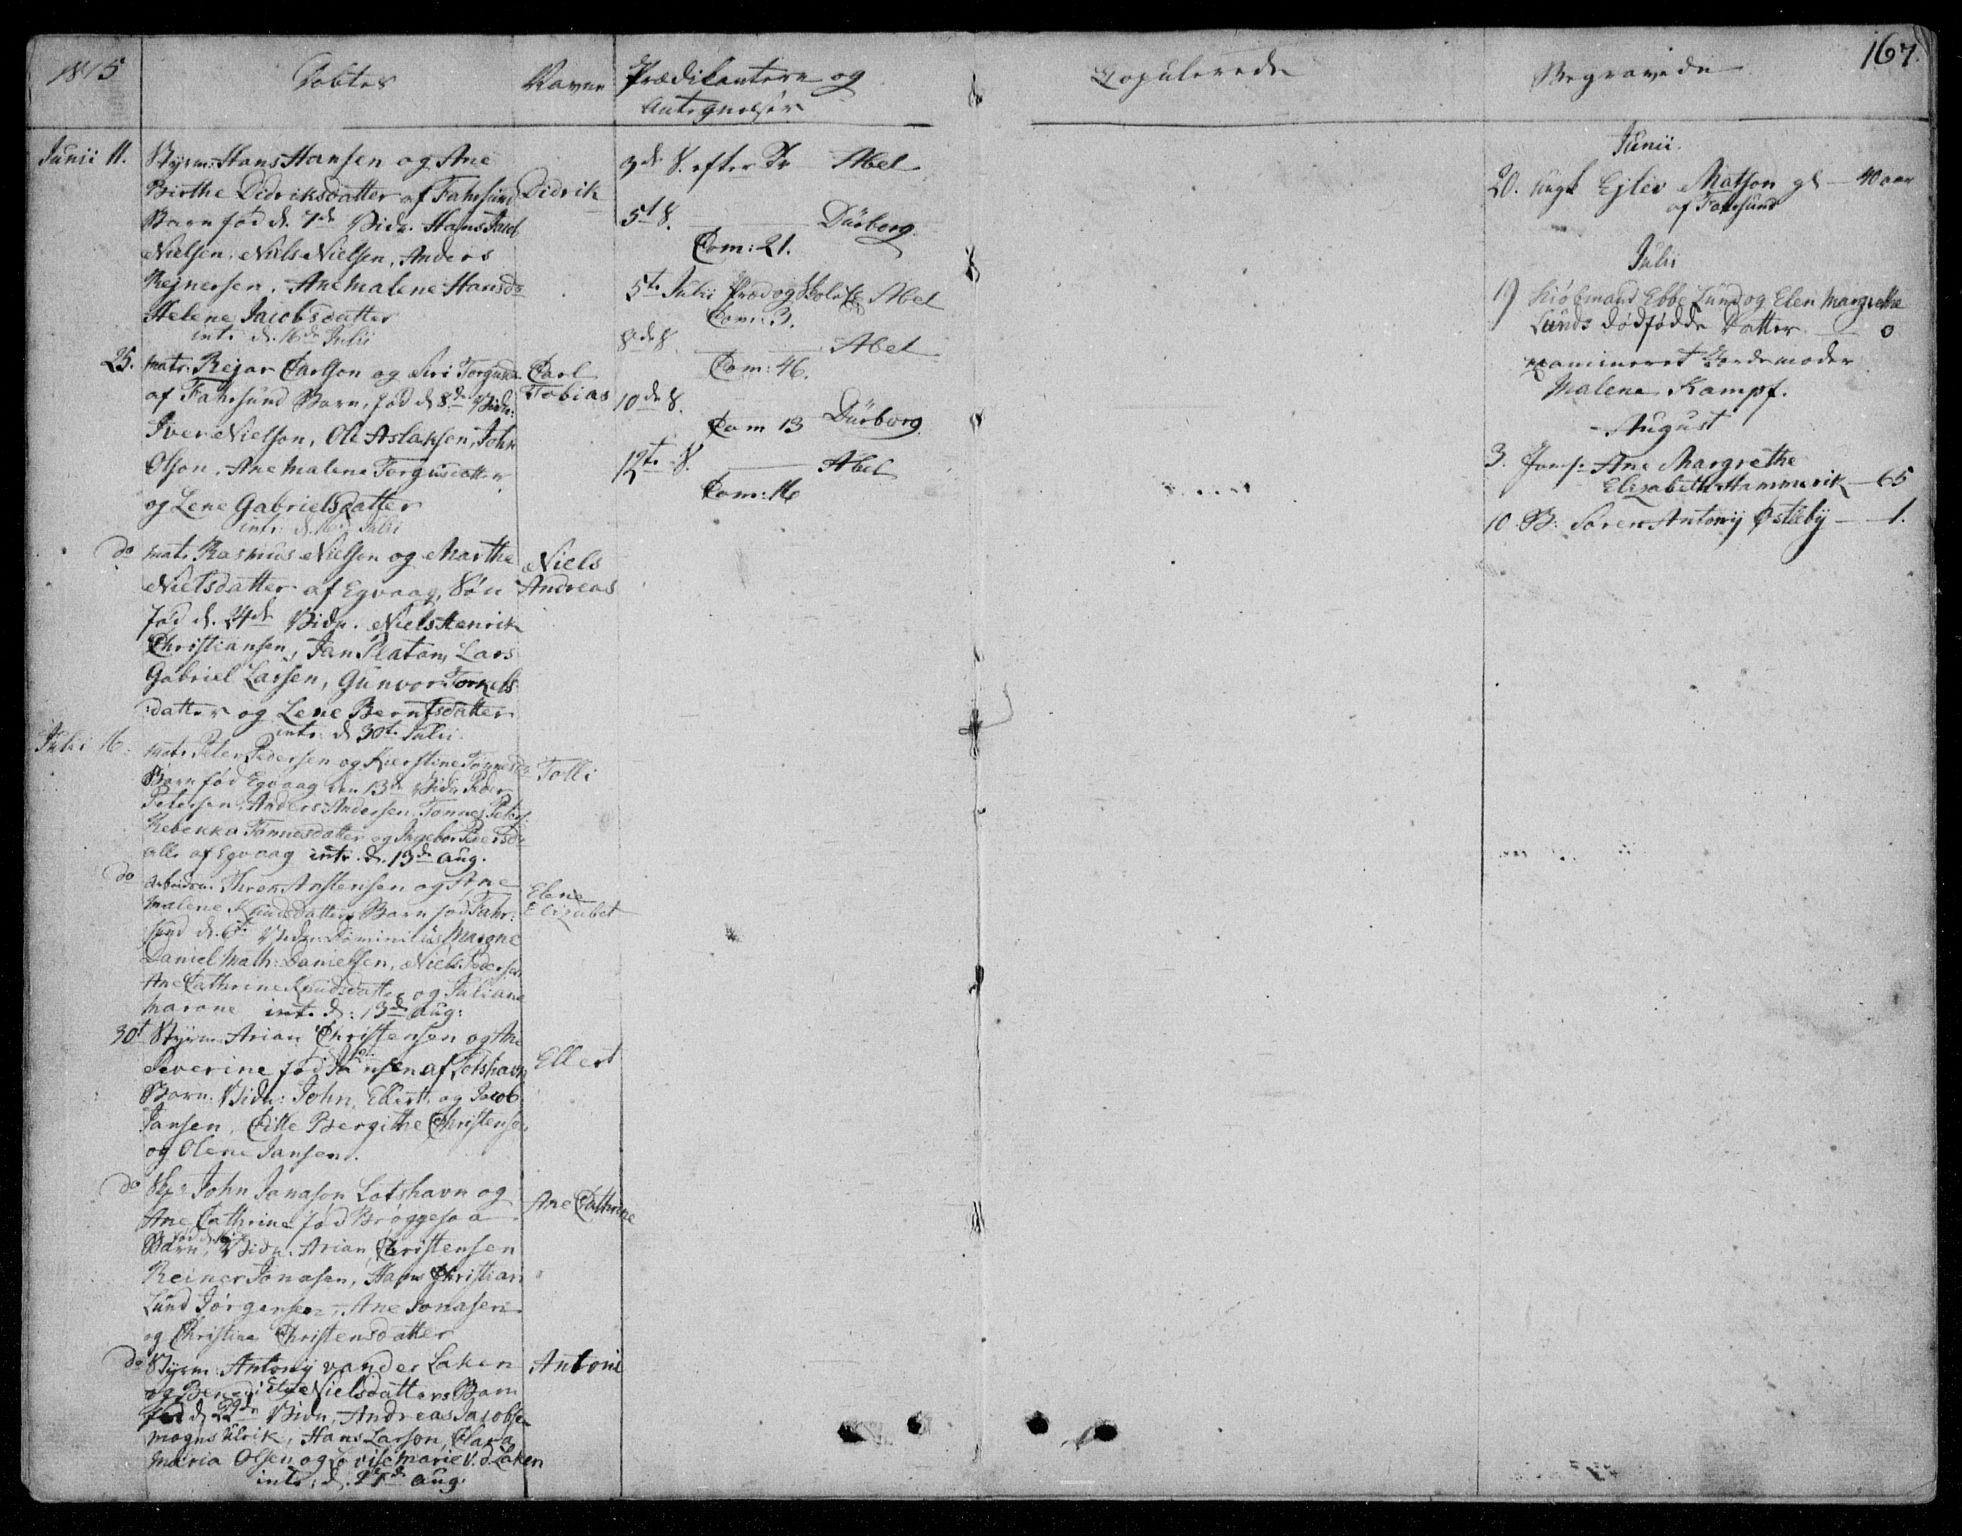 1815
Døbte
Navne
Prædikantere og
Antegnelser
Copulerede
Begravede
167.
Junii 11.
Styrm: Hans Hansen og Ane
Birthe Didriksdatter af Fahrsund
Barn fød d. 7de Vidn. Hans Jacob
Nielsen. Niels Nielsen, Anders
Rejnersen. Ane Malene Hansd
Helene Jacobsdatter
intr. d. 16de Julii
Didrik
25.
matr. Rejar Carlson og Siri Torgusd
af Fahrsund Barn, fød d 8de Vidn:
Iver Nielson, Ole Aslaksen, John
Olson, Ane Malene Torgusdatter
og Lene Gabrielsdatter
intr. d. 16 Julii
Carl
Tobias
do
matr. Rasmus Nielson og Marthe
Nielsdatter af Egvaag, Søn
fød d. 24de Vidn. Niels Henrik
Christiansen, Jan Platom, Lars
Gabriel Larsen, Gunvor Torkels
datter og Lene Berntsdatter
intr: d 30te Julii
Niels
Andreas
Julii 16.
matr. Peter Pedersen og Kierstine Tønnesd
Barn fød Egvaag den 13de Vidn Peder
Petersen, Anders Andersen, Tønnes Peters:
Rebekka Tønnesdatter og Ingebor Pedersd
alle af Egvaag intr. d. 13de Aug.
Tolli
do
Arbeidsm. Thron Anstensen og Ane
Malene Knudsdatter Barn fød Fahr:
sund d. 6te Vidn. Dominicus Magne
Daniel Math: Danielsen, Niels Pedersen
Ane Cathrine Knudsdatter og Juliane
Marane intr. d: 13de Aug:
Elene
Elizabet
30t
Styrm Arian Christensen og Ane
Severine fød Jansen af Lotshavn
Barn. Vidn: John, Ellert og Jacob
Jansen, Cille Bergithe Christensen
og Olene Jansen.
Ellert
do
Skp. John Janason Lotshavn og
Ane Cathrine fød Brøggesaa
Barn, Vidn. Arian Christensen
Reiner Jonasen, Hans Christian
Lund Jørgensen, Ane Jonasen
og Christine Christensdatter
Ane Cathrine
do
Styrm. Antonij van der Laken
og Benedicte Nielsdatters Barn
fød d 22de Vidn, Andreas Jacobsen
Mogns Ulrik, Hans Larson, Clara
Maria Olsen og Lovise Marie V. d Laken
intr: d. 27de Aug:
Antoni
3de S. efter Tr Abel
5t S. Dürborg.
Com: 21.
5te Julii Præd og Skole Ex Abel
Com: 3.
8de S Abel
Com: 46.
10de S.
Com 13 Dürborg
12te S. Abel
Com: 16
Junii.
20. Ungk Ejlev Matson gl — 40 aar
af Fahrsund
Julii
19 Kiøbmand Ebbe Lund og Elen Margrethe
Lunds dødfødde Datter — 0
examineret Jordemoder
Malene Kampf.
August
3. Jomf: Ane Margrethe
Elizabeth Hammerik — 65
10 B: Søren Antonij Østebÿ — 1.